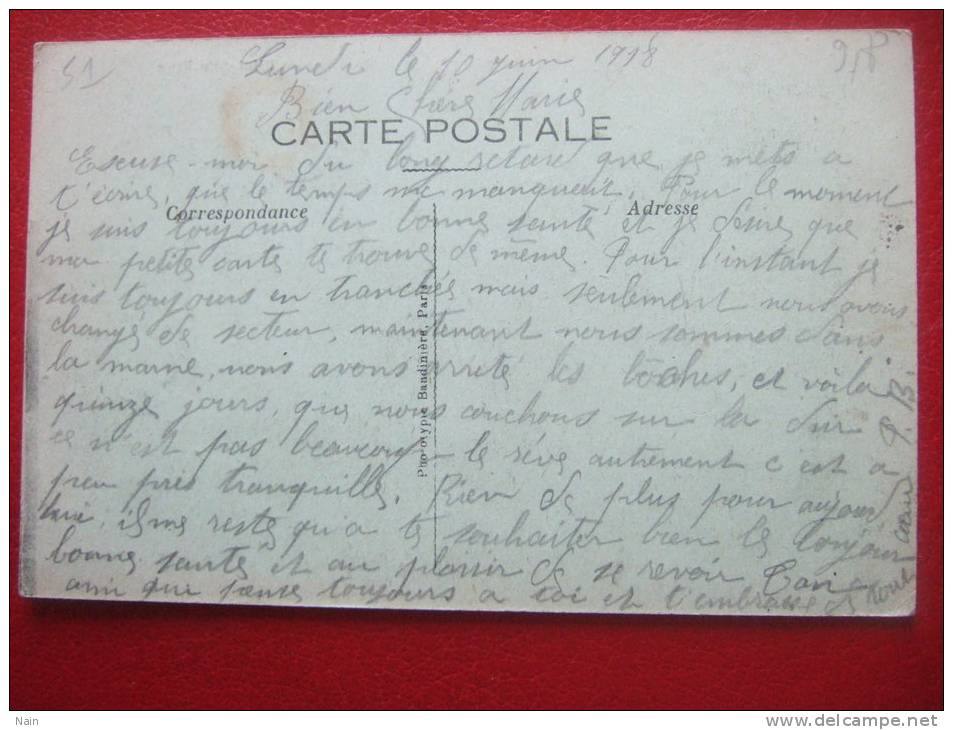 51
978
Lundi le 10 juin 1918
Bien Chère Marie
CARTE POSTALE
Escuse-moi du long retard que je mets a
t'écrire, que le temps me manquait, Pour le moment
Correspondance
Adresse
je suis toujours en bonne santé et je désire que
ma petite carte te trouve de même. Pour l'instant je
suis toujours en tranchée mais seulement nous avons
changé de secteur, maintenant nous sommes dans
la marne, nous avons arrété les boches, et voila
quinze jours, que nous couchons sur la dure
ce n'est pas beaucoup le rêve autrement c'est a
peu près tranquille. Rien de plus pour aujourd
hui, il me reste qu'a te souhaiter bien le bonjour
bonne santé et au plaisir de se revoir Ton
ami qui pense toujours a toi et t'embrasse de
cœur
Phototypie Bandinière, Paris
Nain
www.delcampe.net